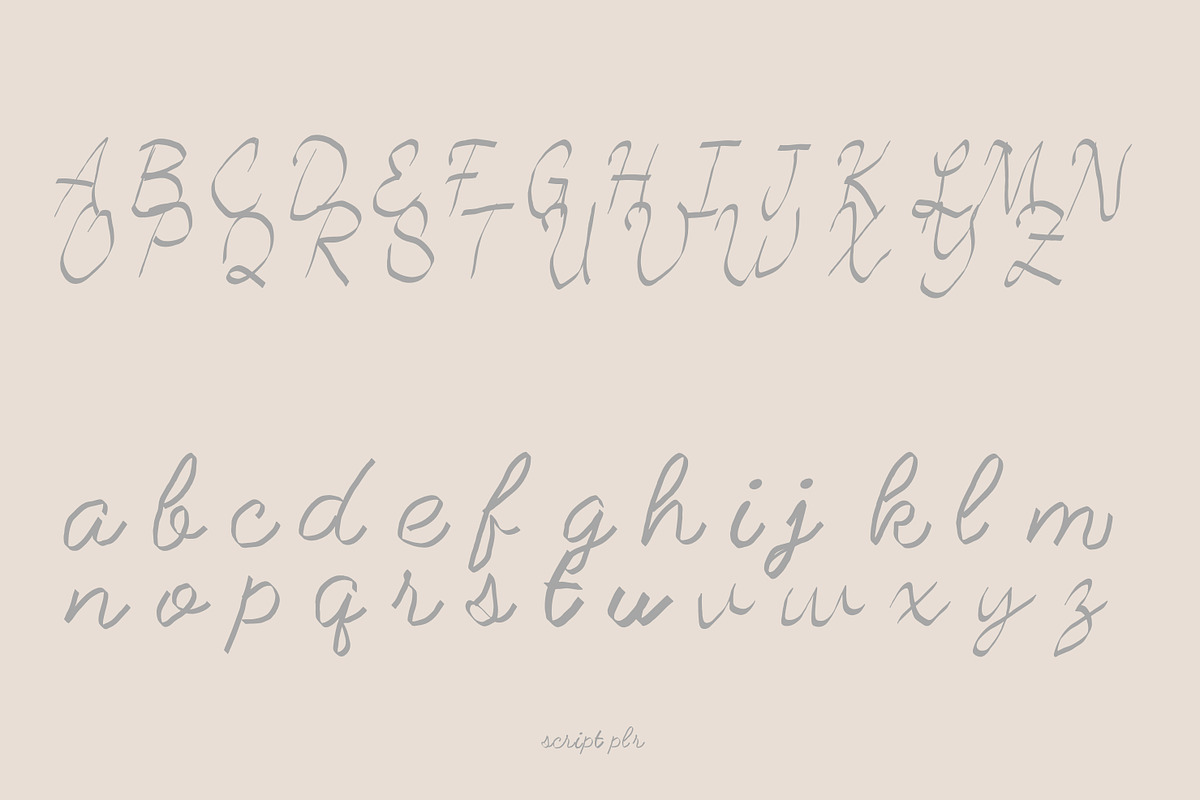 A B C D E F G H I J K L M N
O P Q R S T U V W X Y Z
a b c d e f g h i j k l m
n o p q r s t u v w x y z
script plr